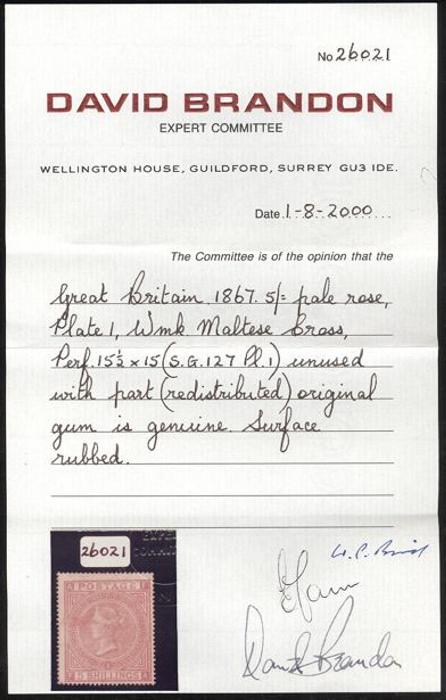 No 26021
DAVID BRANDON
EXPERT COMMITTEE
WELLINGTON HOUSE, GUILDFORD, SURREY GU3 1DE.
Date 1-8-2000
The Committee is of the opinion that the
Great Britain 1867. 5/= pale rose,
Plate 1, Wmk Maltese Cross,
Perf. 15½ x 15 (S.G. 127 Pl. 1) unused
with part (redistributed) original
gum is genuine. Surface
rubbed.
26021
POSTAGE
5 SHILLINGS
David Brandon